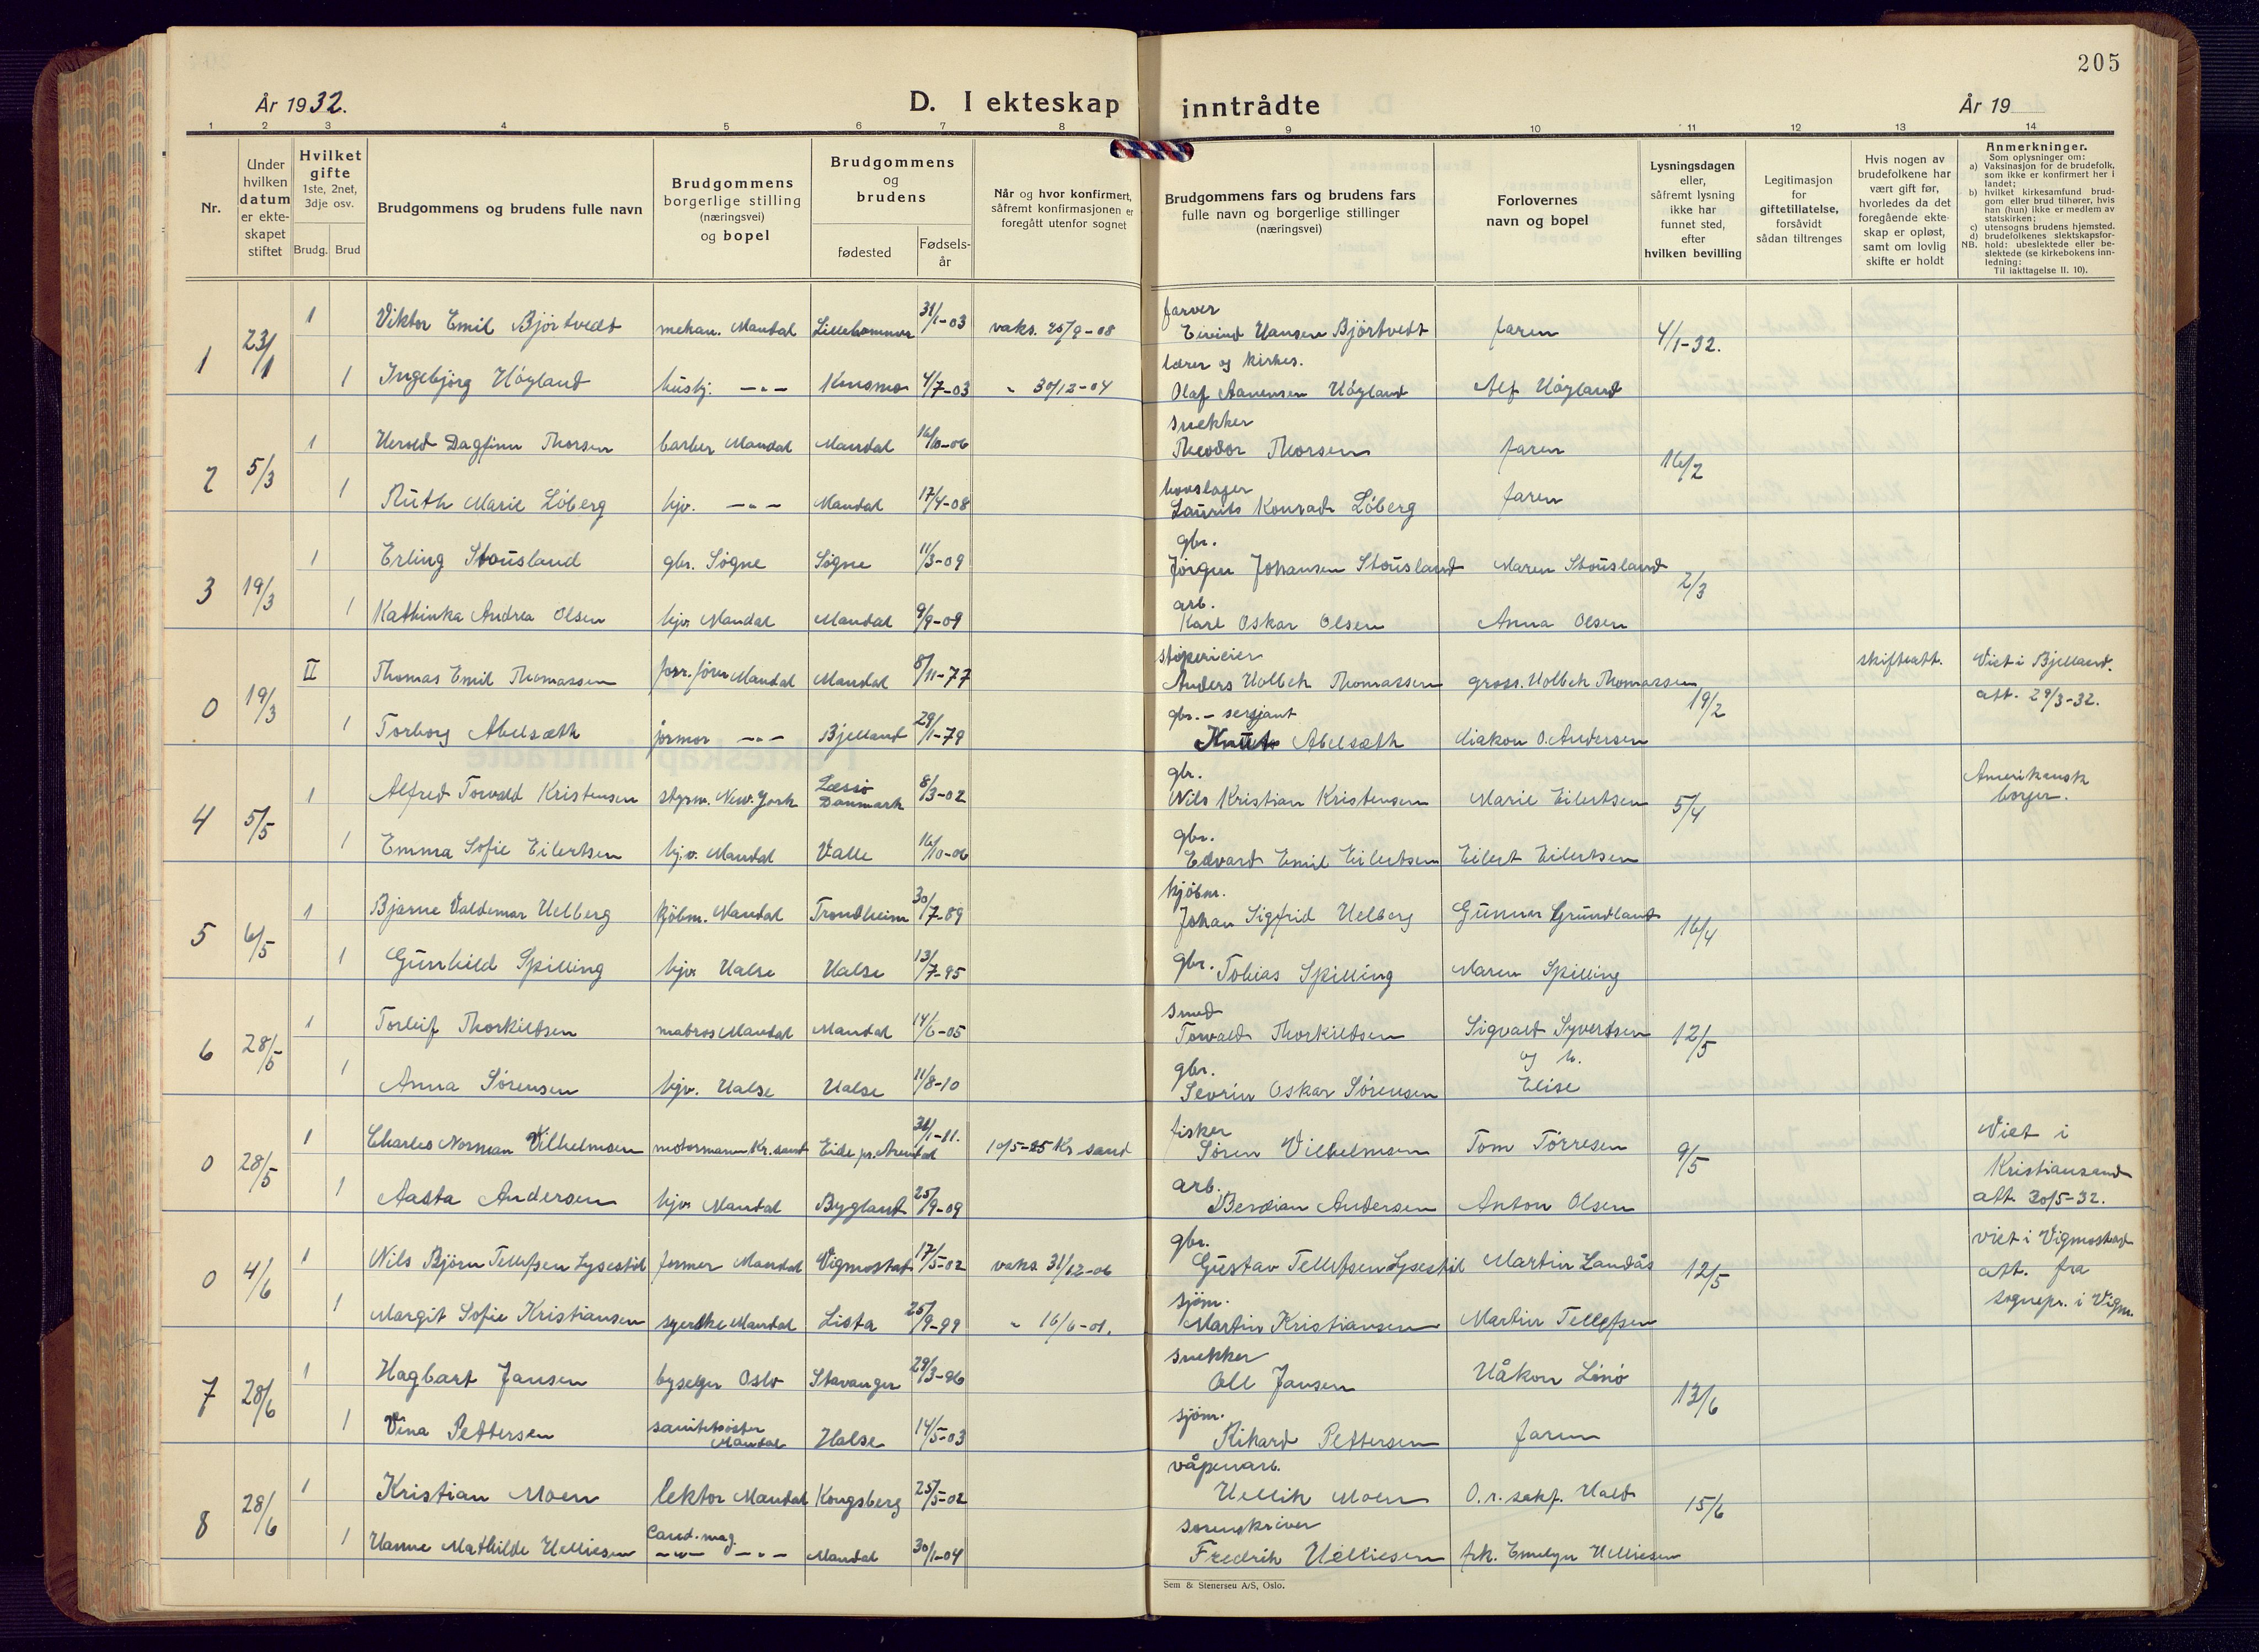 205
År 1932.
D. I ekteskap inntrådte
År 19
1 2 3 4 5 6 7 8 9 10 11 12 13 14
Nr.
Under
hvilken
datum
er ekte-
skapet
stiftet
Hvilket
gifte
1ste, 2net,
3dje osv.
Brudg. Brud
Brudgommens og brudens fulle navn
Brudgommens
borgerlige stilling
(næringsvei)
og bopel
Brudgommens
og
brudens
fødested
Fødsels-
år
Når og hvor konfirmert,
såfremt konfirmasjonen er
foregått utenfor sognet
Brudgommens fars og brudens fars
fulle navn og borgerlige stillinger
(næringsvei)
Forlovernes
navn og bopel
Lysningsdagen
eller,
såfremt lysning
ikke har
funnet sted,
efter
hvilken bevilling
Legitimasjon
for
giftetillatelse,
forsåvidt
sådan tiltrenges
Hvis nogen av
brudefolkene har
vært gift før,
hvorledes da det
foregående ekte-
skap er opløst,
samt om lovlig
skifte er holdt
Anmerkninger.
Som oplysninger om:
a) Vaksinasjon for de brudefolk,
som ikke er konfirmert her i
landet;
b) hvilket kirkesamfund brud-
gom eller brud tilhører, hvis
han (hun) ikke er medlem av
statskirken;
c) utensogns brudens hjemsted.
d) brudefolkenes slektskapsfor-
NB. hold: ubeslektede eller be-
slektede (se kirkebokens inn-
ledning:
Til iakttagelse II. 10).
farver
1 23/1 1 Viktor Emil Bjørtvedt mekan. Mandal Lillehammer 31/1-03 vaks. 25/9-08 Eivind Hansen Bjørtvedt faren 4/1-32.
lærer og kirkes.
1 Ingebjørg Høyland husbj. -"- Konsmo 4/7-03 " 30/12-04 Olaf Aanensen Høyland Alf Høyland
snekker
2 5/3 1 Herold Dagfinn Thorsen barber Mandal Mandal 16/10-06 Theodor Thorsen faren 16/2
hovslager
1 Ruth Marie Løberg hjv. -"- Mandal 17/4-08 Laurits Konrad Løberg faren
gbr.
3 19/3 1 Erling Stousland gbr. Søgne Søgne 11/3-09 Jørgen Johansen Stousland Maren Stousland 2/3
arb.
1 Kathinka Andrea Olsen hjv. Mandal Mandal 9/9-09 Karl Oskar Olsen Anna Olsen
støperieier
0 19/3 II Thomas Emil Thomassen forr.fører Mandal Mandal 8/11-77 Anders Holbek Thomassen gross. Holbek Thomassen 19/2 skifteatt. Viet i Bjelland.
att. 29/3-32.
gbr. - sersjant
1 Torborg Abelsæth jormor -"- Bjelland 29/1-79 Knut Abelsæth diakon O. Andersen
gbr.
4 5/5 1 Alfred Torvald Kristensen styrm. New. York Læssø Danmark 8/3-02 Nils Kristian Kristensen Marie Eilertsen 5/4 Amerikansk
borger.
gbr.
1 Emma Sofie Eilertsen hj.v. Mandal Valle 16/10-06 Edvard Emil Eilertsen Eilert Eilertsen
kjøbm.
5 6/5 1 Bjarne Valdemar Helberg kjøbm. Mandal Trondheim 30/7-89 Johan Sigfrid Helberg Gunnar Grundland 16/4
1 Gunhild Spilling hjv. Halse Halse 13/7-95 gbr. Tobias Spilling Maren Spilling
smed
6 28/5 1 Torleif Thorkildsen matros Mandal Mandal 14/6-05 Torvald Thorkildsen Sigvald Syvertsen 12/5
og h.
gbr.
1 Anna Sørensen hjv. Halse Halse 11/8-10 Sevrin Oskar Sørensen Elise
fisker
0 28/5 1 Charles Norman Vilhelmsen motormann Kr.sand Eide pr. Arendal 31/1-11. 10/5-25 Kr sand Søren Vilhelmsen Tom Tørresen 9/5 Viet i
Kristiansand
att. 30/5-32.
arb.
1 Aasta Andersen hjv. Mandal Bygland 25/9-09 Berdian Andersen Anton Olsen
gbr.
0 4/6 1 Nils Bjørn Tellefsen Lysestøl former Mandal Vigmostad 17/5-02 vaks. 31/12-06 Gustav Tellefsen Lysestøl Martin Landås 12/5 viet i Vigmostad
att. fra
sognepr. i Vigm.
sjøm.
1 Margit Sofie Kristiansen syerske Mandal Lista 25/9-99 " 16/6-01. Martin Kristiansen Martin Tellefsen
snekker
7 28/6 1 Hagbart Jansen byselger Oslo Stavanger 29/3-96 Ole Jansen Håkon Linø 13/6
sjøm.
1 Vina Pettersen sanitetsøster Mandal Halse 14/5-03 Rikard Pettersen faren
våpenarb.
8 28/6 1 Kristian Moen lektor Mandal Kongsberg 25/5-02 Hellik Moen O.r. sakf. Hald 15/6
sorenskriver
1 Hanne Mathilde Helliesen Cand. mag. -"- -"- Mandal 30/1-04 Fredrik Helliesen frk. Emelyn Helliesen
Sem & Stenersen A/S, Oslo.